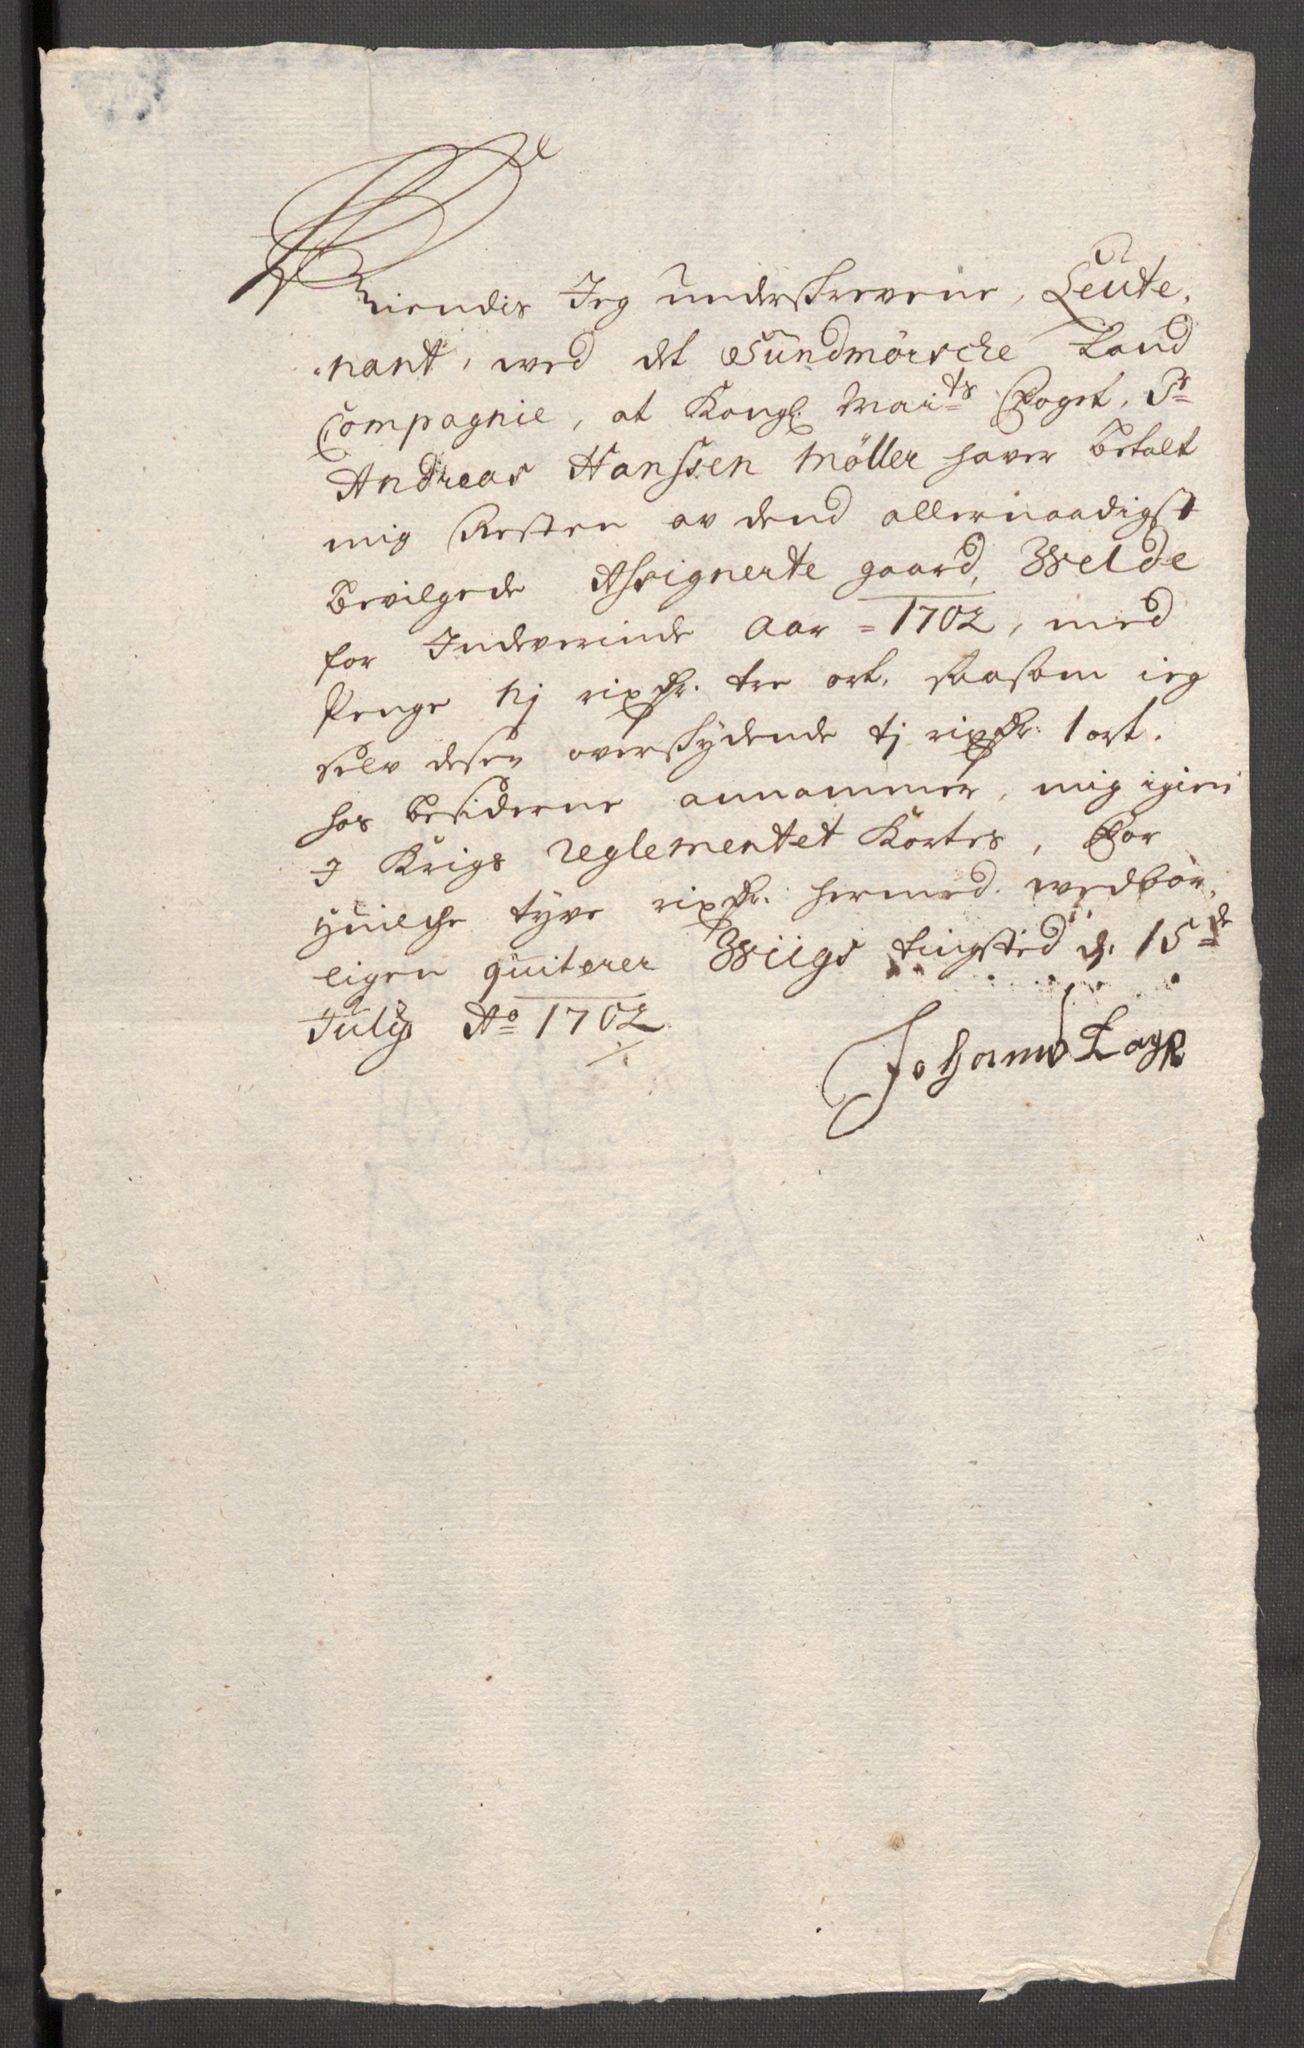 Kiendis Jeg underskrevene, Leute-
nant, wed det Sundmörsche Land
Compagnie, at Kongl. Mai:ts Foget, Sr
Andreas Hanssen Möller haver betalt
mig Resten av dend allernaadigst
bevilgede Assignerte gaard, Welde
for Indeverinde Aar = 1702, med
Penge nj rixdr. tre ort. saasom jeg
selv desen overskydende tj rixdr. 1 ort.
hos besiderne annammer, mig igien
J Krigs reglementet Kortes, For
huilche tyve rixdr. hermed wedbör-
ligen quiterer Wiigs tingsted d. 15de
July Ao 1702
Johans Lage